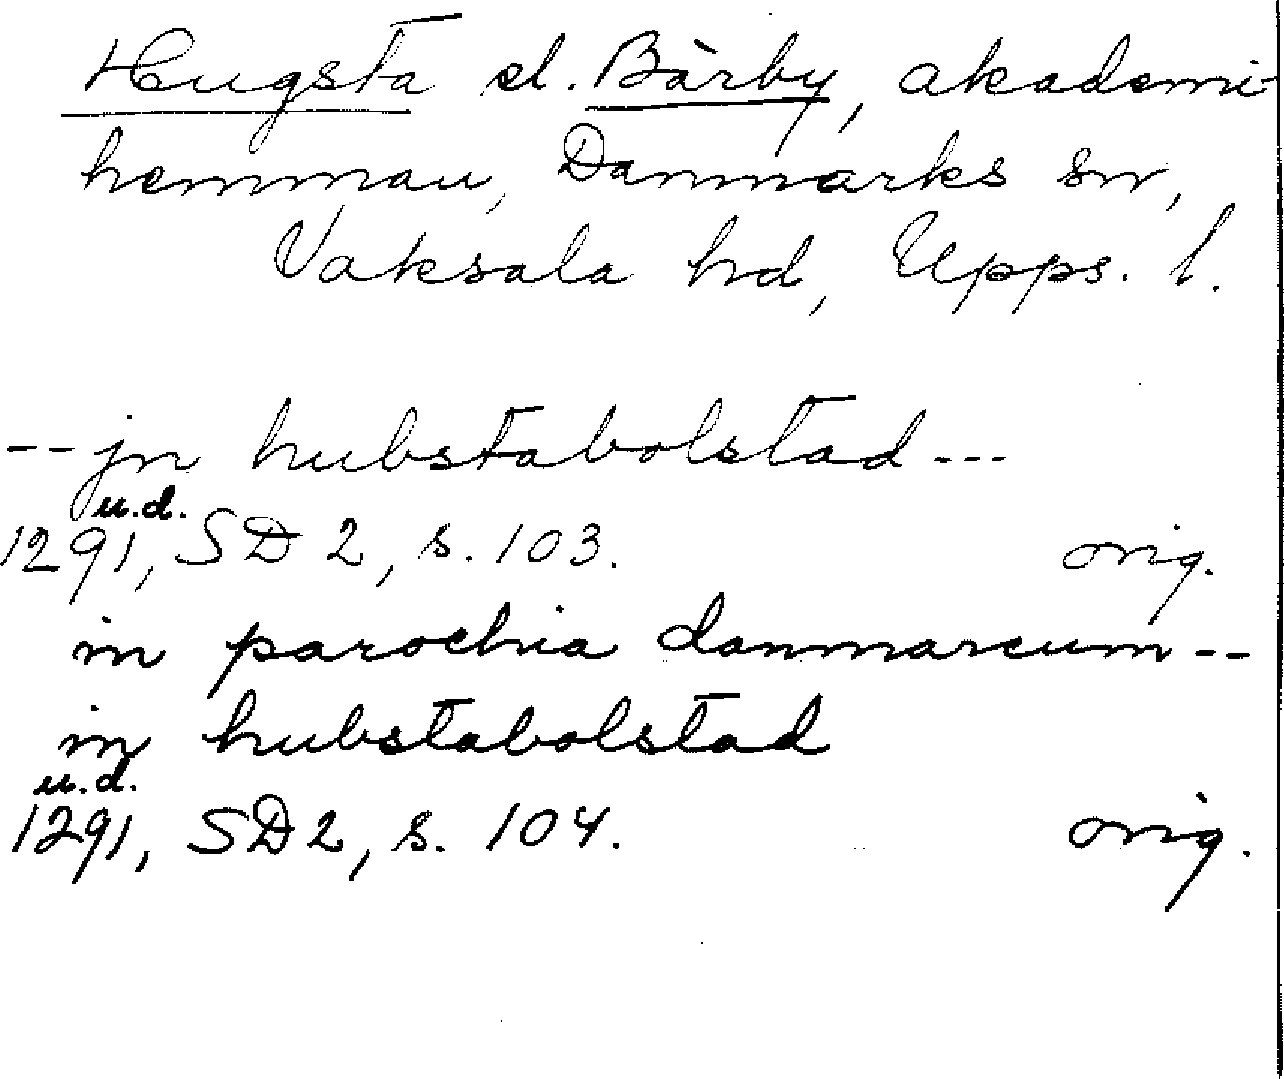 Hugsta el. Bärby, akademi-
hemman, Danmarks sn,
Vaksala hd, Upps. l.
-- jn hubstabolstad ---
u.d.
1291, SD 2, s. 103. orig.
in parochia danmarcum --
in hubstabolstad
u.d.
1291, SD 2, s. 104. orig.